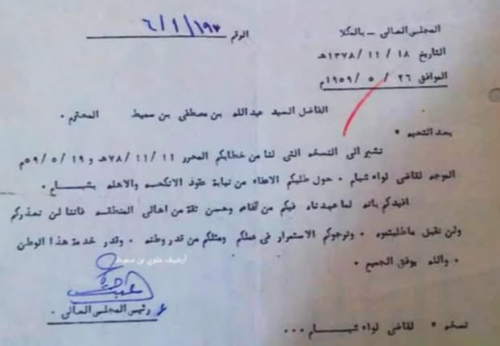 المجلس العالي - بالمكلا
الرقم ٦/١/١٩٢
التاريخ ١٨ / ١١ / ١٣٧٨هـ
الموافق ٢٦ / ٥ / ١٩٥٩م
الفاضل السيد عبدالله بن مصطفى بن سميط المحترم ٠
بعد التحية ٠
نشير الى النسخه التي لنا من خطابكم المحرر ١١/١١/٧٨ و ٥٩/٥/١٩م
الموجه لقاضي لواء شبام ٠ حول طلبكم الاعفاء من نيابة عقود الانكحه والاهله بشبام ٠
افيدكم بانه لما عهدناه فيكم من كفاءه وحسن ثقة من اهالي المنطقه فاننا لن نعذركم
ولن نقبل ماطلبتموه ٠ ونرجوكم الاستمرار في عملكم ومثلكم من قدر وطنه ٠ وقدر خدمة هذا الوطن
٠ والله يوفق الجميع ٠
أرشيف علوي بن سميط
رئيس المجلس العالي ٠
نسخه ٠ لقاضي لواء شبام ٠٠٠